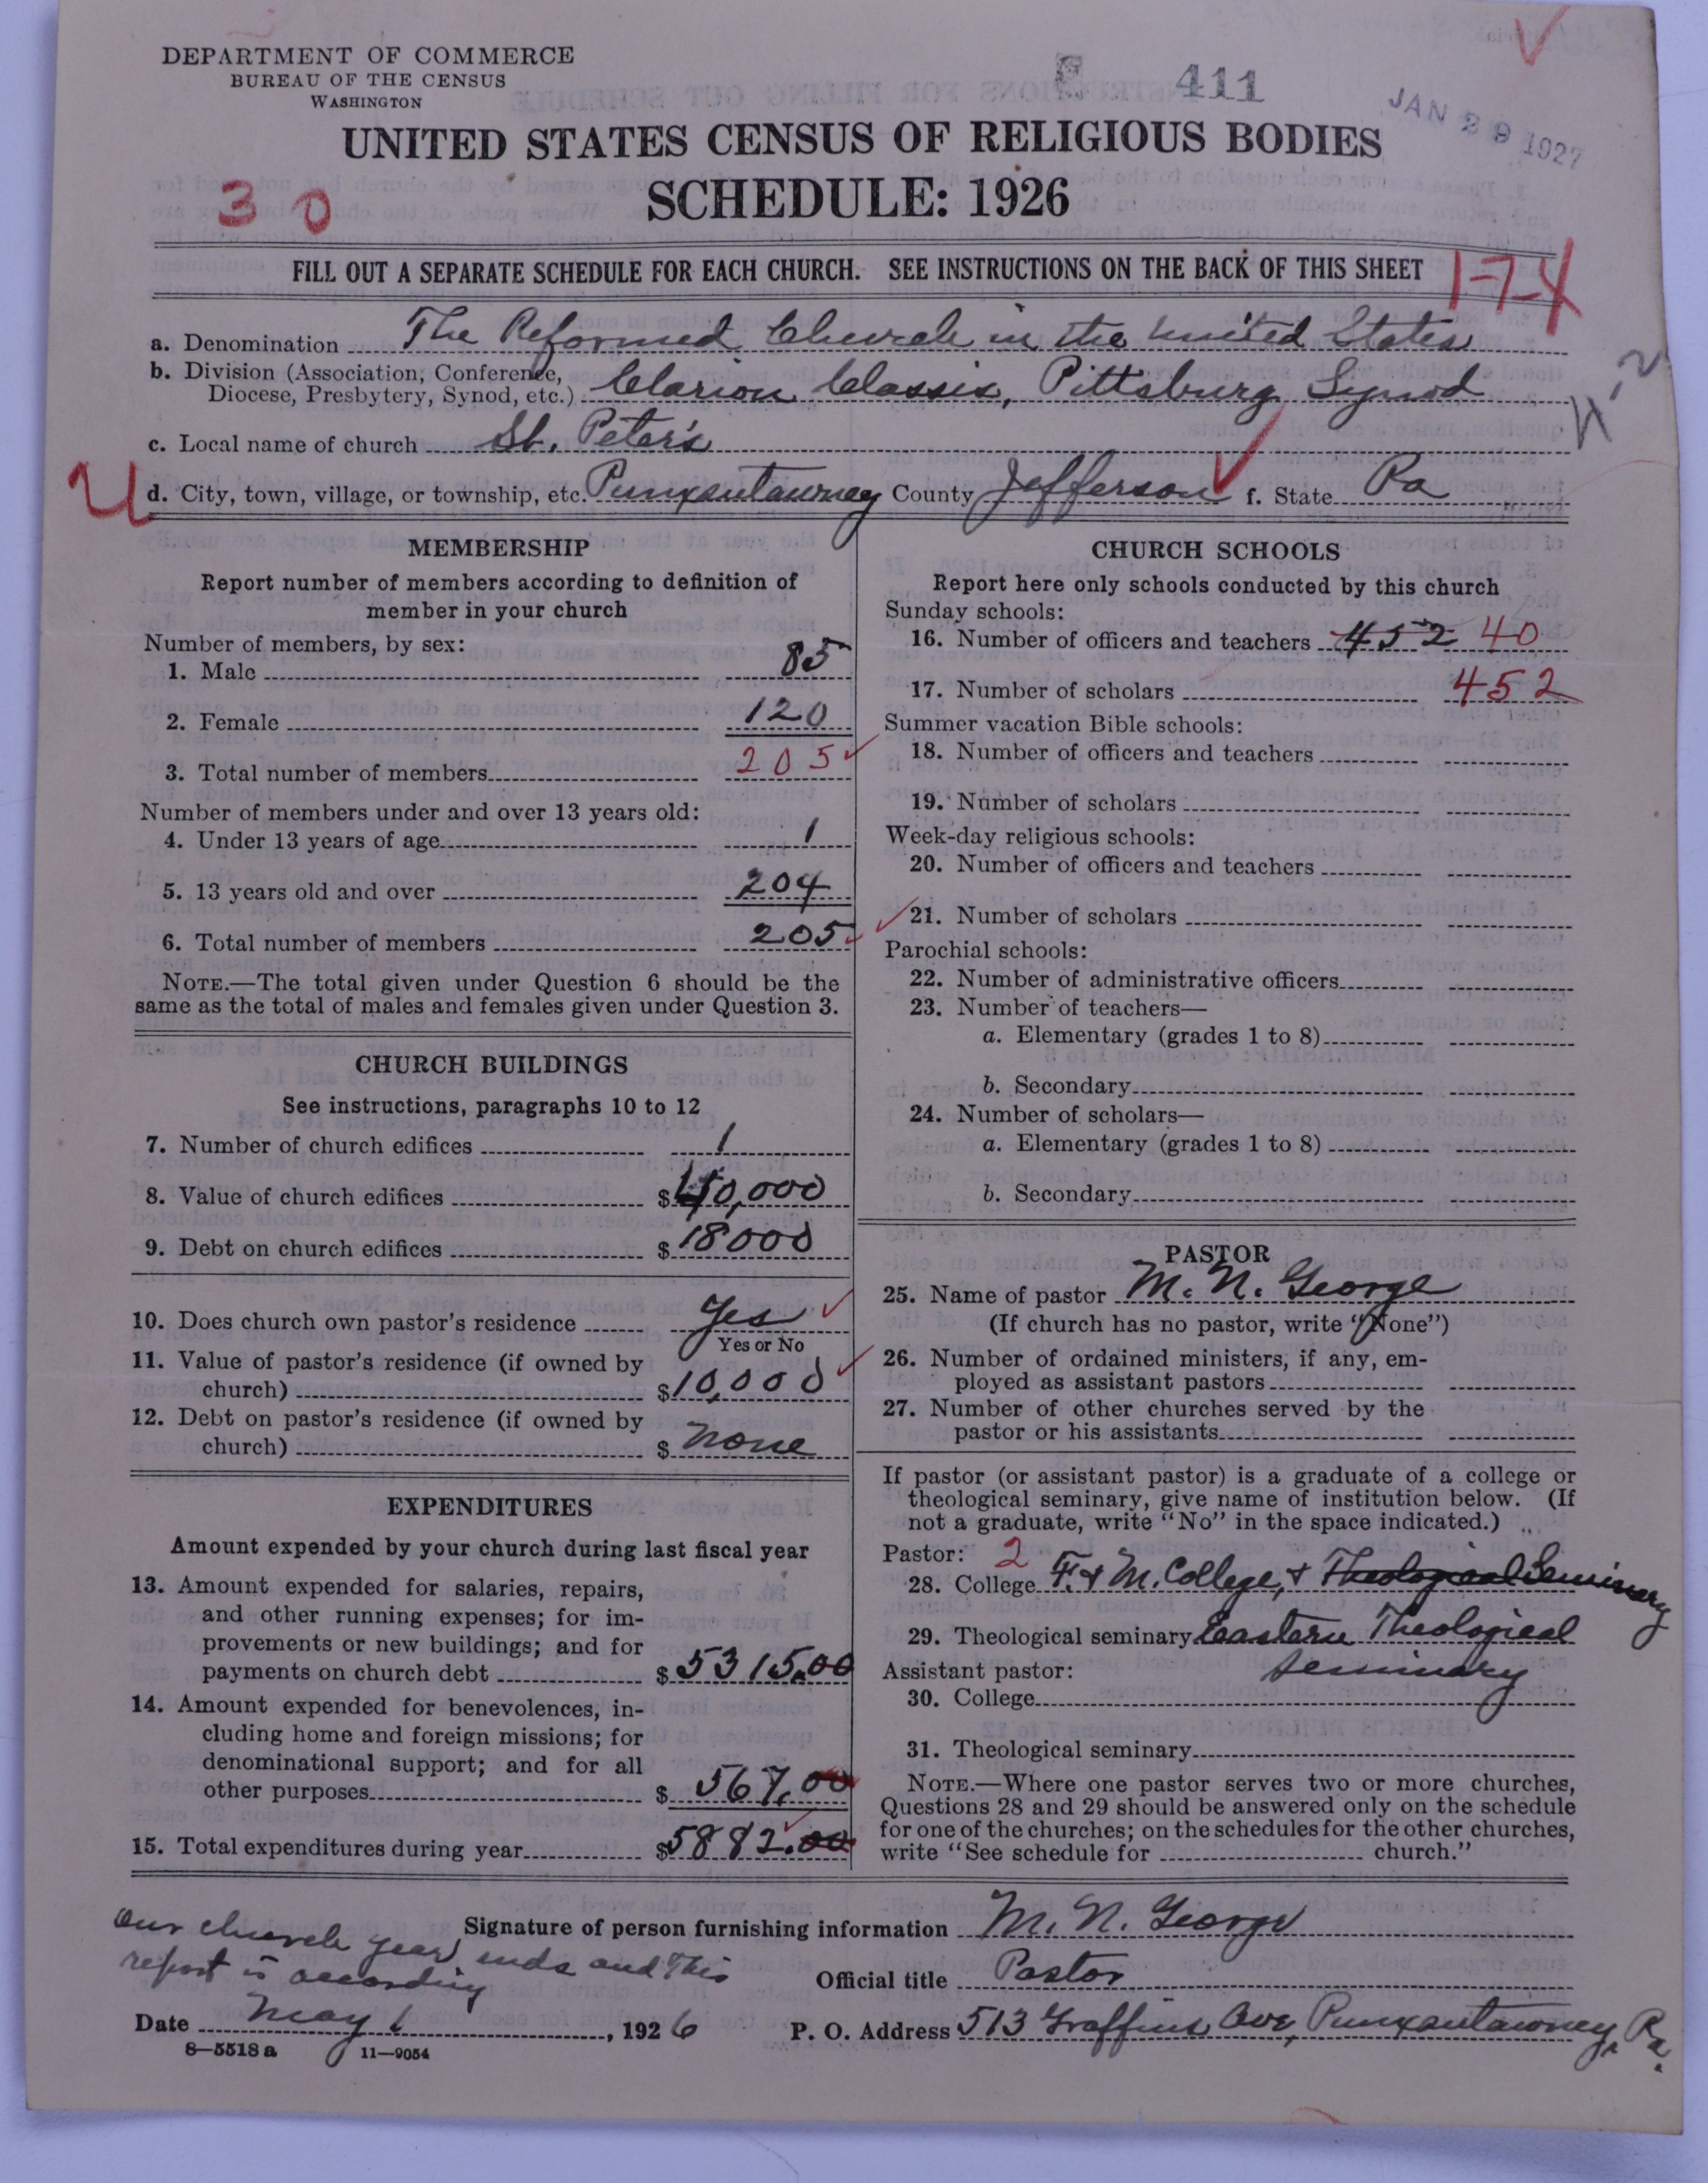 DEPARTMENT OF COMMERCE
BUREAU OF THE CENSUS
WASHINGTON
411
JAN 29 1927
UNITED STATES CENSUS OF RELIGIOUS BODIES
SCHEDULE: 1926
3 0
FILL OUT A SEPARATE SCHEDULE FOR EACH CHURCH. SEE INSTRUCTIONS ON THE BACK OF THIS SHEET
1-7-4
a. Denomination The Reformed Church in the United States
b. Division (Association, Conference, Diocese, Presbytery, Synod, etc.) Clarion Classis, Pittsburg Synod
c. Local name of church St. Peter's
d. City, town, village, or township, etc. Punxsutawney County Jefferson f. State Pa
MEMBERSHIP
Report number of members according to definition of
member in your church
Number of members, by sex:
1. Male 85
2. Female 120
3. Total number of members 205
Number of members under and over 13 years old:
4. Under 13 years of age 1
5. 13 years old and over 204
6. Total number of members 205
NOTE.—The total given under Question 6 should be the
same as the total of males and females given under Question 3.
CHURCH BUILDINGS
See instructions, paragraphs 10 to 12
7. Number of church edifices 1
8. Value of church edifices $40,000
9. Debt on church edifices $18000
10. Does church own pastor's residence Yes
Yes or No
11. Value of pastor's residence (if owned by
church) $10,000
12. Debt on pastor's residence (if owned by
church) $ none
EXPENDITURES
Amount expended by your church during last fiscal year
13. Amount expended for salaries, repairs,
and other running expenses; for im-
provements or new buildings; and for
payments on church debt $5315.00
14. Amount expended for benevolences, in-
cluding home and foreign missions; for
denominational support; and for all
other purposes $567.00
15. Total expenditures during year $5882.00
CHURCH SCHOOLS
Report here only schools conducted by this church
Sunday schools:
16. Number of officers and teachers 452 40
17. Number of scholars 452
Summer vacation Bible schools:
18. Number of officers and teachers
19. Number of scholars
Week-day religious schools:
20. Number of officers and teachers
21. Number of scholars
Parochial schools:
22. Number of administrative officers
23. Number of teachers—
a. Elementary (grades 1 to 8)
b. Secondary
24. Number of scholars—
a. Elementary (grades 1 to 8)
b. Secondary
PASTOR
25. Name of pastor M. N. George
(If church has no pastor, write "None")
26. Number of ordained ministers, if any, em-
ployed as assistant pastors
27. Number of other churches served by the
pastor or his assistants
If pastor (or assistant pastor) is a graduate of a college or
theological seminary, give name of institution below. (If
not a graduate, write "No" in the space indicated.)
Pastor: 2
28. College F. & M. College, & Theological Seminary
29. Theological seminary Eastern Theological
Seminary
Assistant pastor:
30. College
31. Theological seminary
NOTE.—Where one pastor serves two or more churches,
Questions 28 and 29 should be answered only on the schedule
for one of the churches; on the schedules for the other churches,
write "See schedule for church."
our church year ends and this
report is according
Signature of person furnishing information M. N. George
Official title Pastor
Date May 1, 1926
P. O. Address 513 Graffius Ave, Punxsutawney, Pa.
8—5518 a 11—9054